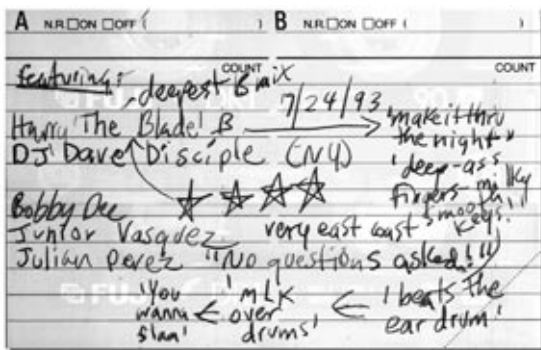 A N.R. ☐ON ☐OFF ( ) B N.R. ☐ON ☐OFF ( )
COUNT COUNT
featuring: deepest B mix
7/24/93
Harry 'The Blade' B → 'make it thru
the night'
DJ Dave Disciple (NY) 'deep-ass
fingers milky
smooth
keys!'
☆ ☆ ☆ ☆
Bobby Dee
Junior Vasquez very east coast
Julian perez "No questions asked!!"
'You wanna slam' ← 'MLK over drums' ← 'beats the ear drum'
FUJI DR-I 90
FUJI